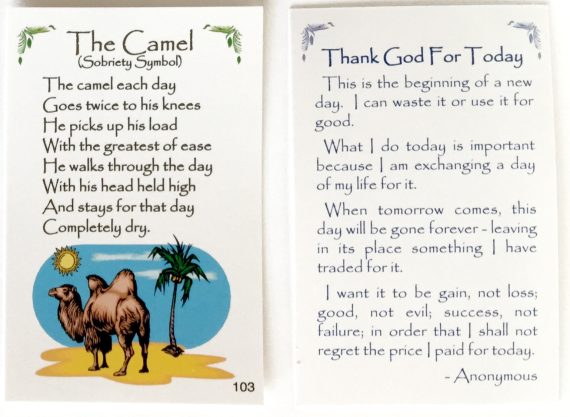 The Camel
(Sobriety Symbol)
The camel each day
Goes twice to his knees
He picks up his load
With the greatest of ease
He walks through the day
With his head held high
And stays for that day
Completely dry.
103
Thank God For Today
This is the beginning of a new
day. I can waste it or use it for
good.
What I do today is important
because I am exchanging a day
of my life for it.
When tomorrow comes, this
day will be gone forever - leaving
in its place something I have
traded for it.
I want it to be gain, not loss;
good, not evil; success, not
failure; in order that I shall not
regret the price I paid for today.
- Anonymous